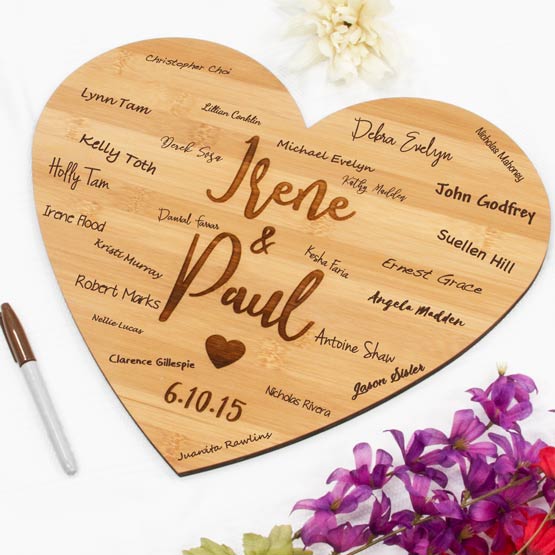 Christopher Choi
Lynn Tam
Lillian Conklin
Debra Evelyn
Nicholas Mahoney
Kelly Toth
Derek Sosa
Michael Evelyn
Holly Tam
Irene
Kathy Madden
John Godfrey
Irene Flood
Danial farras
&
Suellen Hill
Kristi Murray
Paul
Kesha Faria
Ernest Grace
Robert Marks
Angela Madden
Nellie Lucas
Antoine Shaw
Clarence Gillespie
Jason Sisler
6.10.15
Nicholas Rivera
Juanita Rawlins